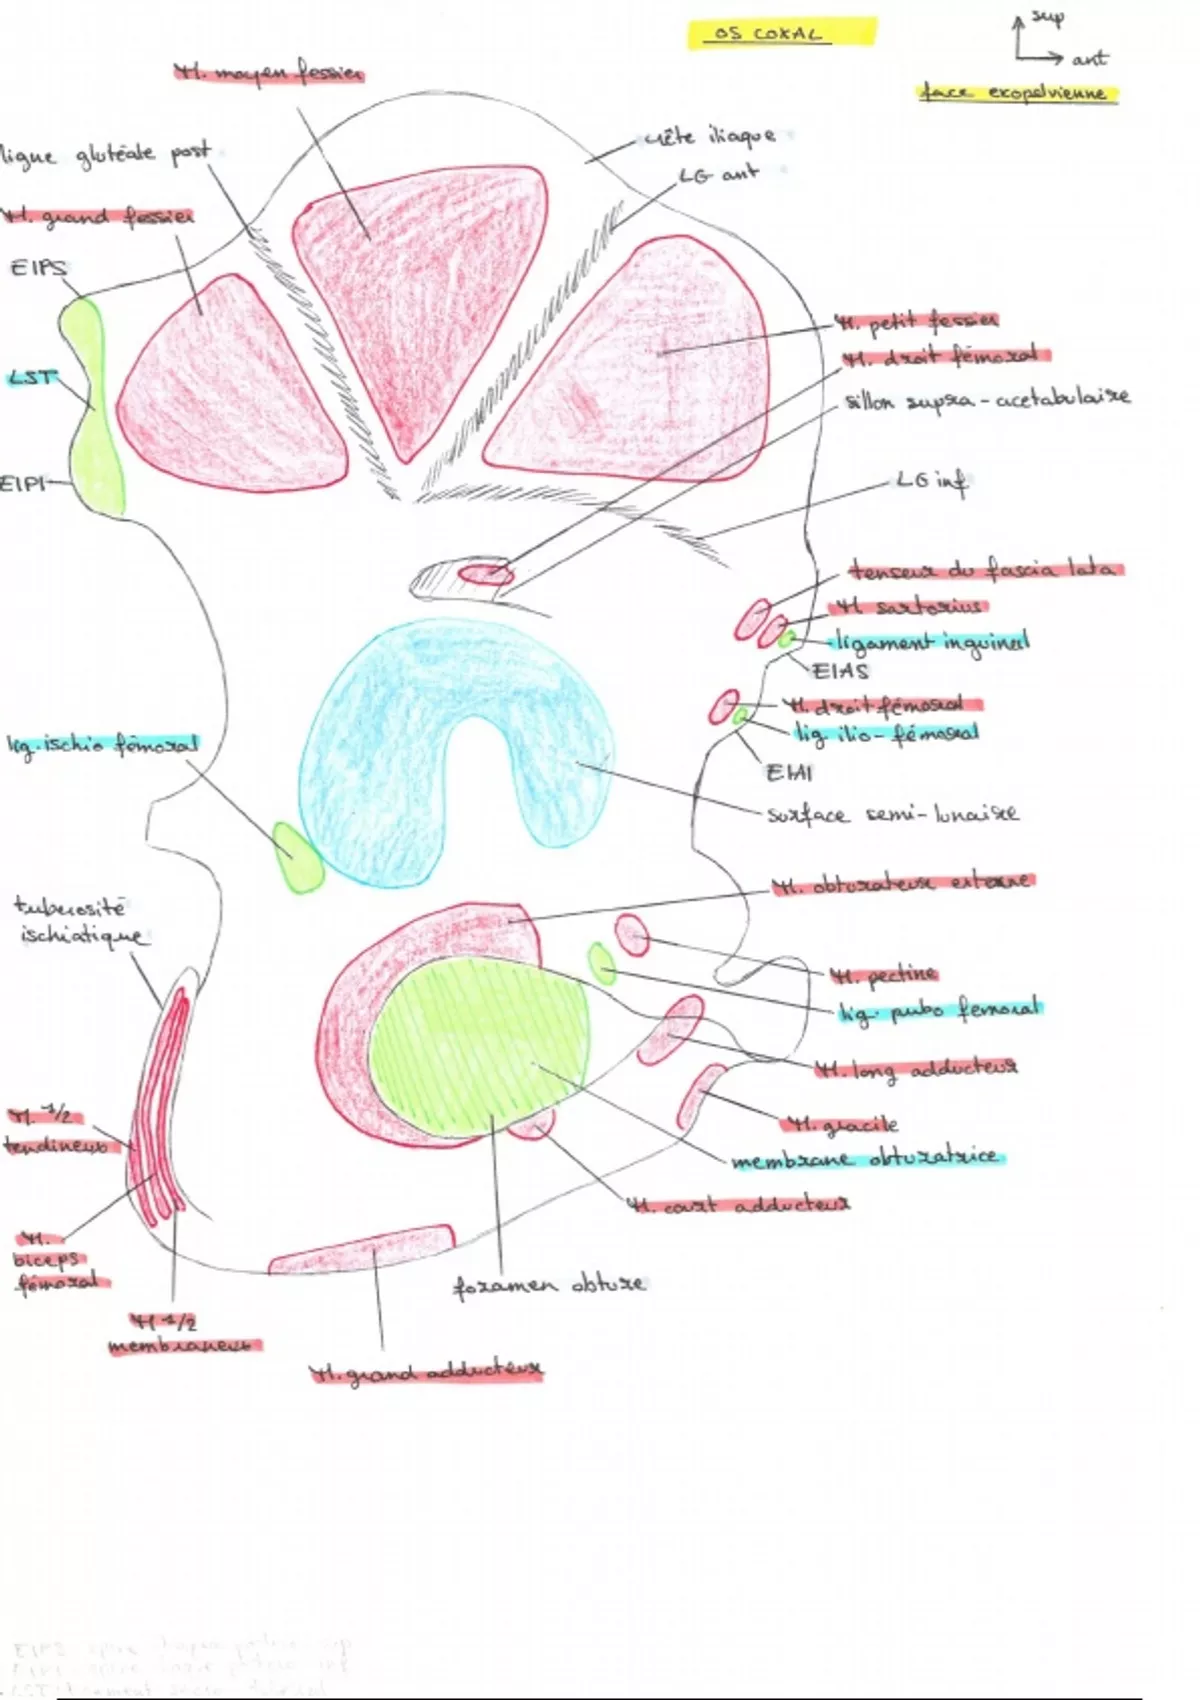 OS COXAL
sup
ant
face exopelvienne
M. moyen fessier
ligne glutéale post
M. grand fessier
EIPS
LST
EIPI
crête iliaque
LG ant
M. petit fessier
M. droit fémoral
sillon supra-acetabulaire
LG inf
tenseur du fascia lata
M sartorius
ligament inguinal
EIAS
M. droit fémoral
lig. ilio-fémoral
EIAI
surface semi-lunaire
lig. ischio fémoral
M. obturateur externe
tuberosité
ischiatique
M. pectine
lig. pubo femoral
M. long adducteur
M. gracile
membrane obturatrice
M. court adducteur
M. 1/2
tendineux
M.
biceps
fémoral
M 1/2
membraneux
foramen obture
M. grand adducteur